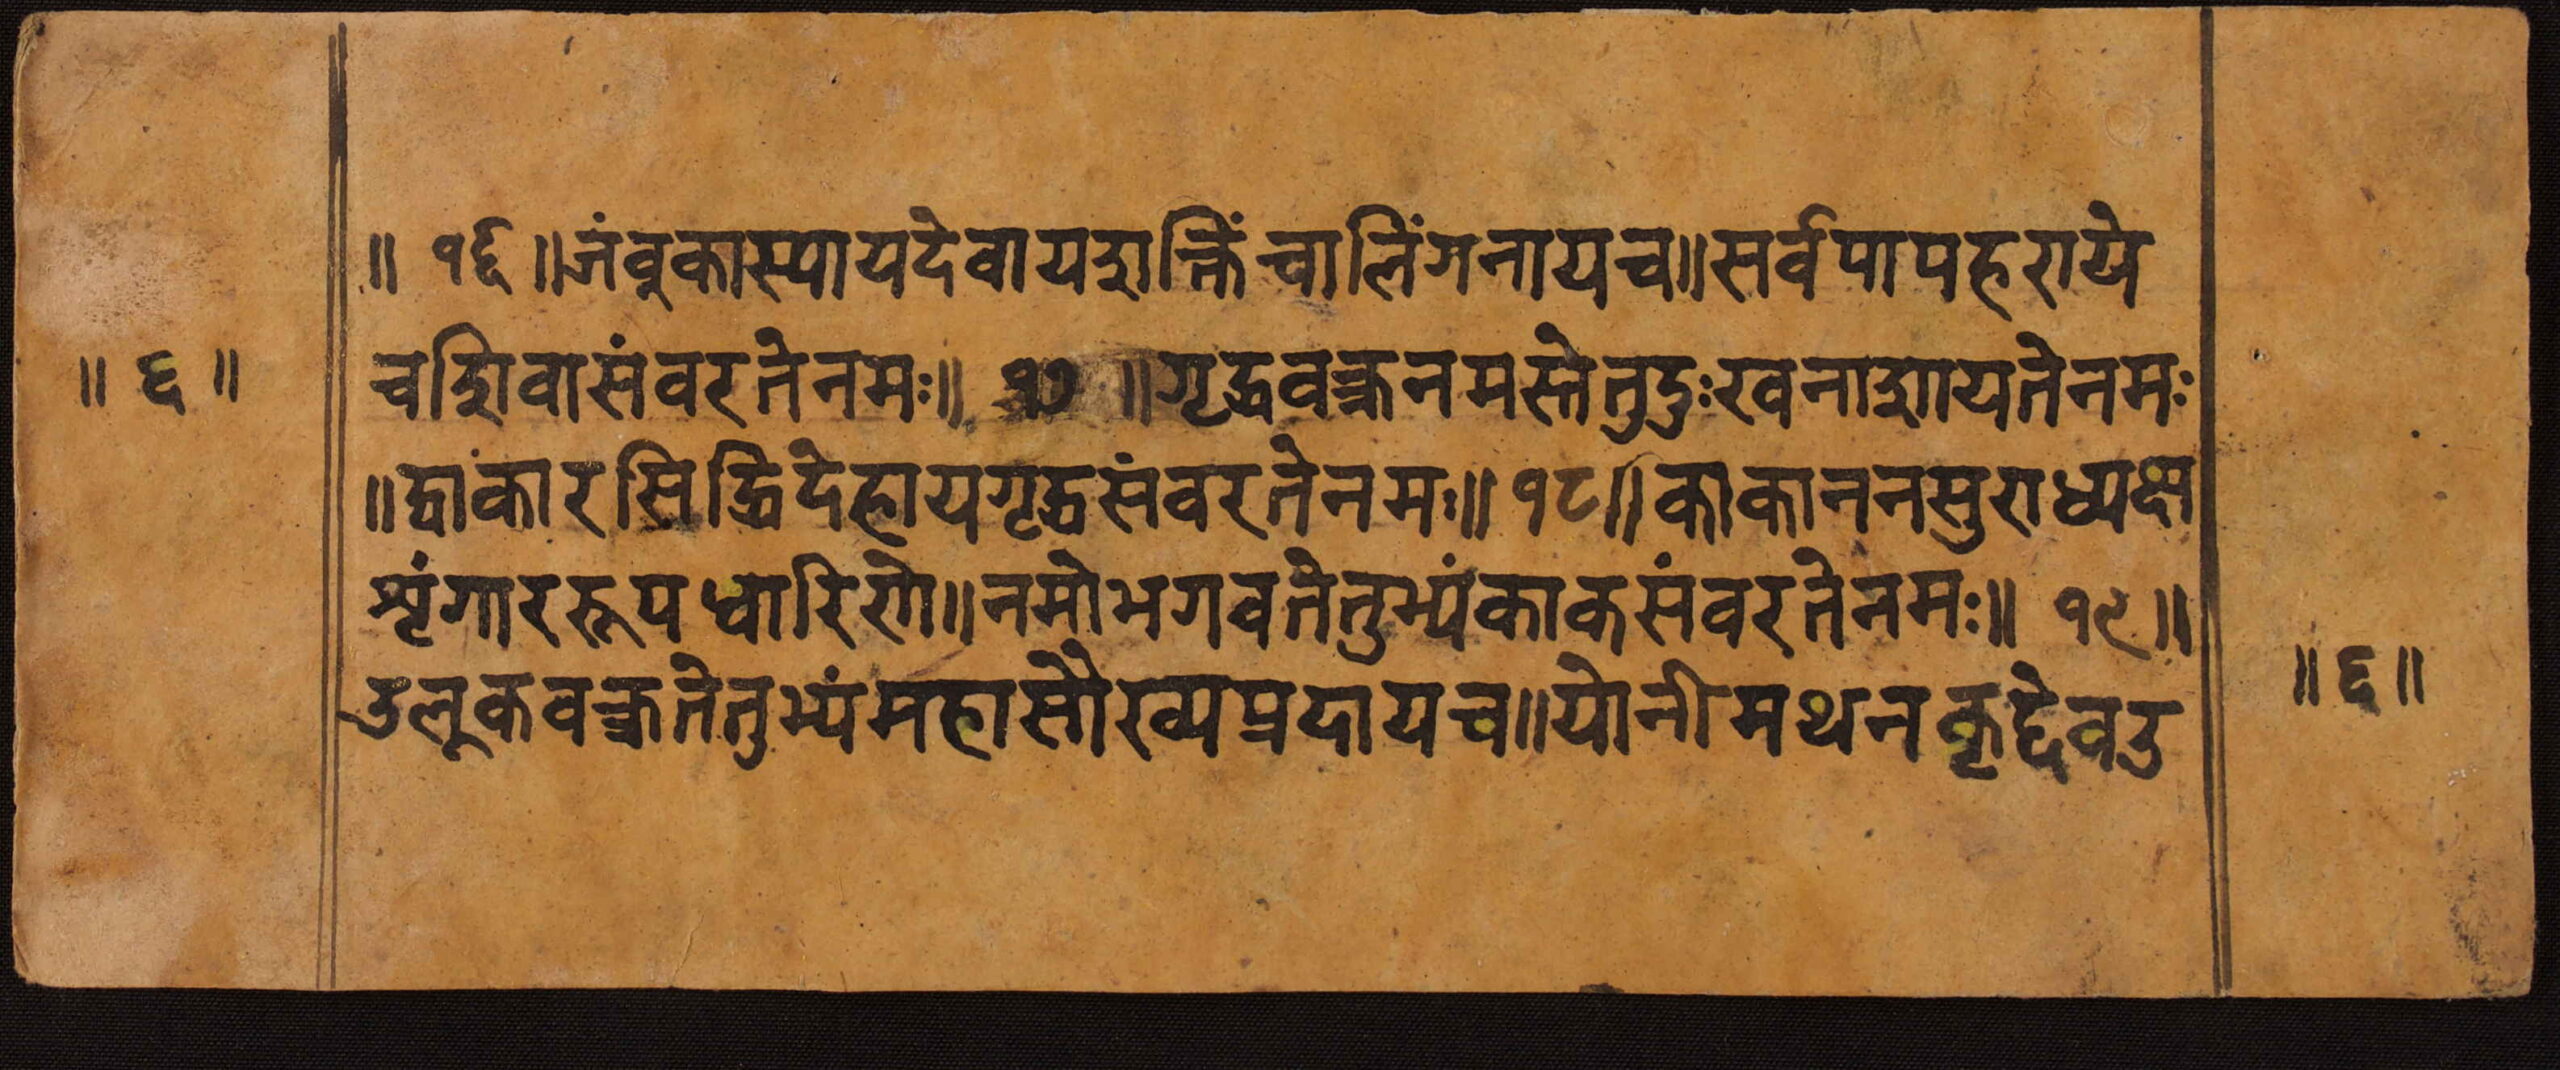 ॥ १६ ॥जंवूकास्यायदेवायशक्तिंचालिंगनायच॥सर्वपापहराये
॥ ६ ॥ चशिवासंवरतेनमः॥ १७ ॥गृद्धवक्त्रनमस्तेतुदुःखनाशायतेनमः
॥द्वांकारसिद्धिदेहायगृद्धसंवरतेनमः॥ १८॥काकाननसुराध्यक्ष
शृंगाररूपधारिणे॥नमोभगवतेतुभ्यंकाकसंवरतेनमः॥ १९॥
उलूकवक्त्रतेतुभ्यंमहासौख्यप्रदायच॥योनीमथनकृद्देवउ ॥ ६ ॥